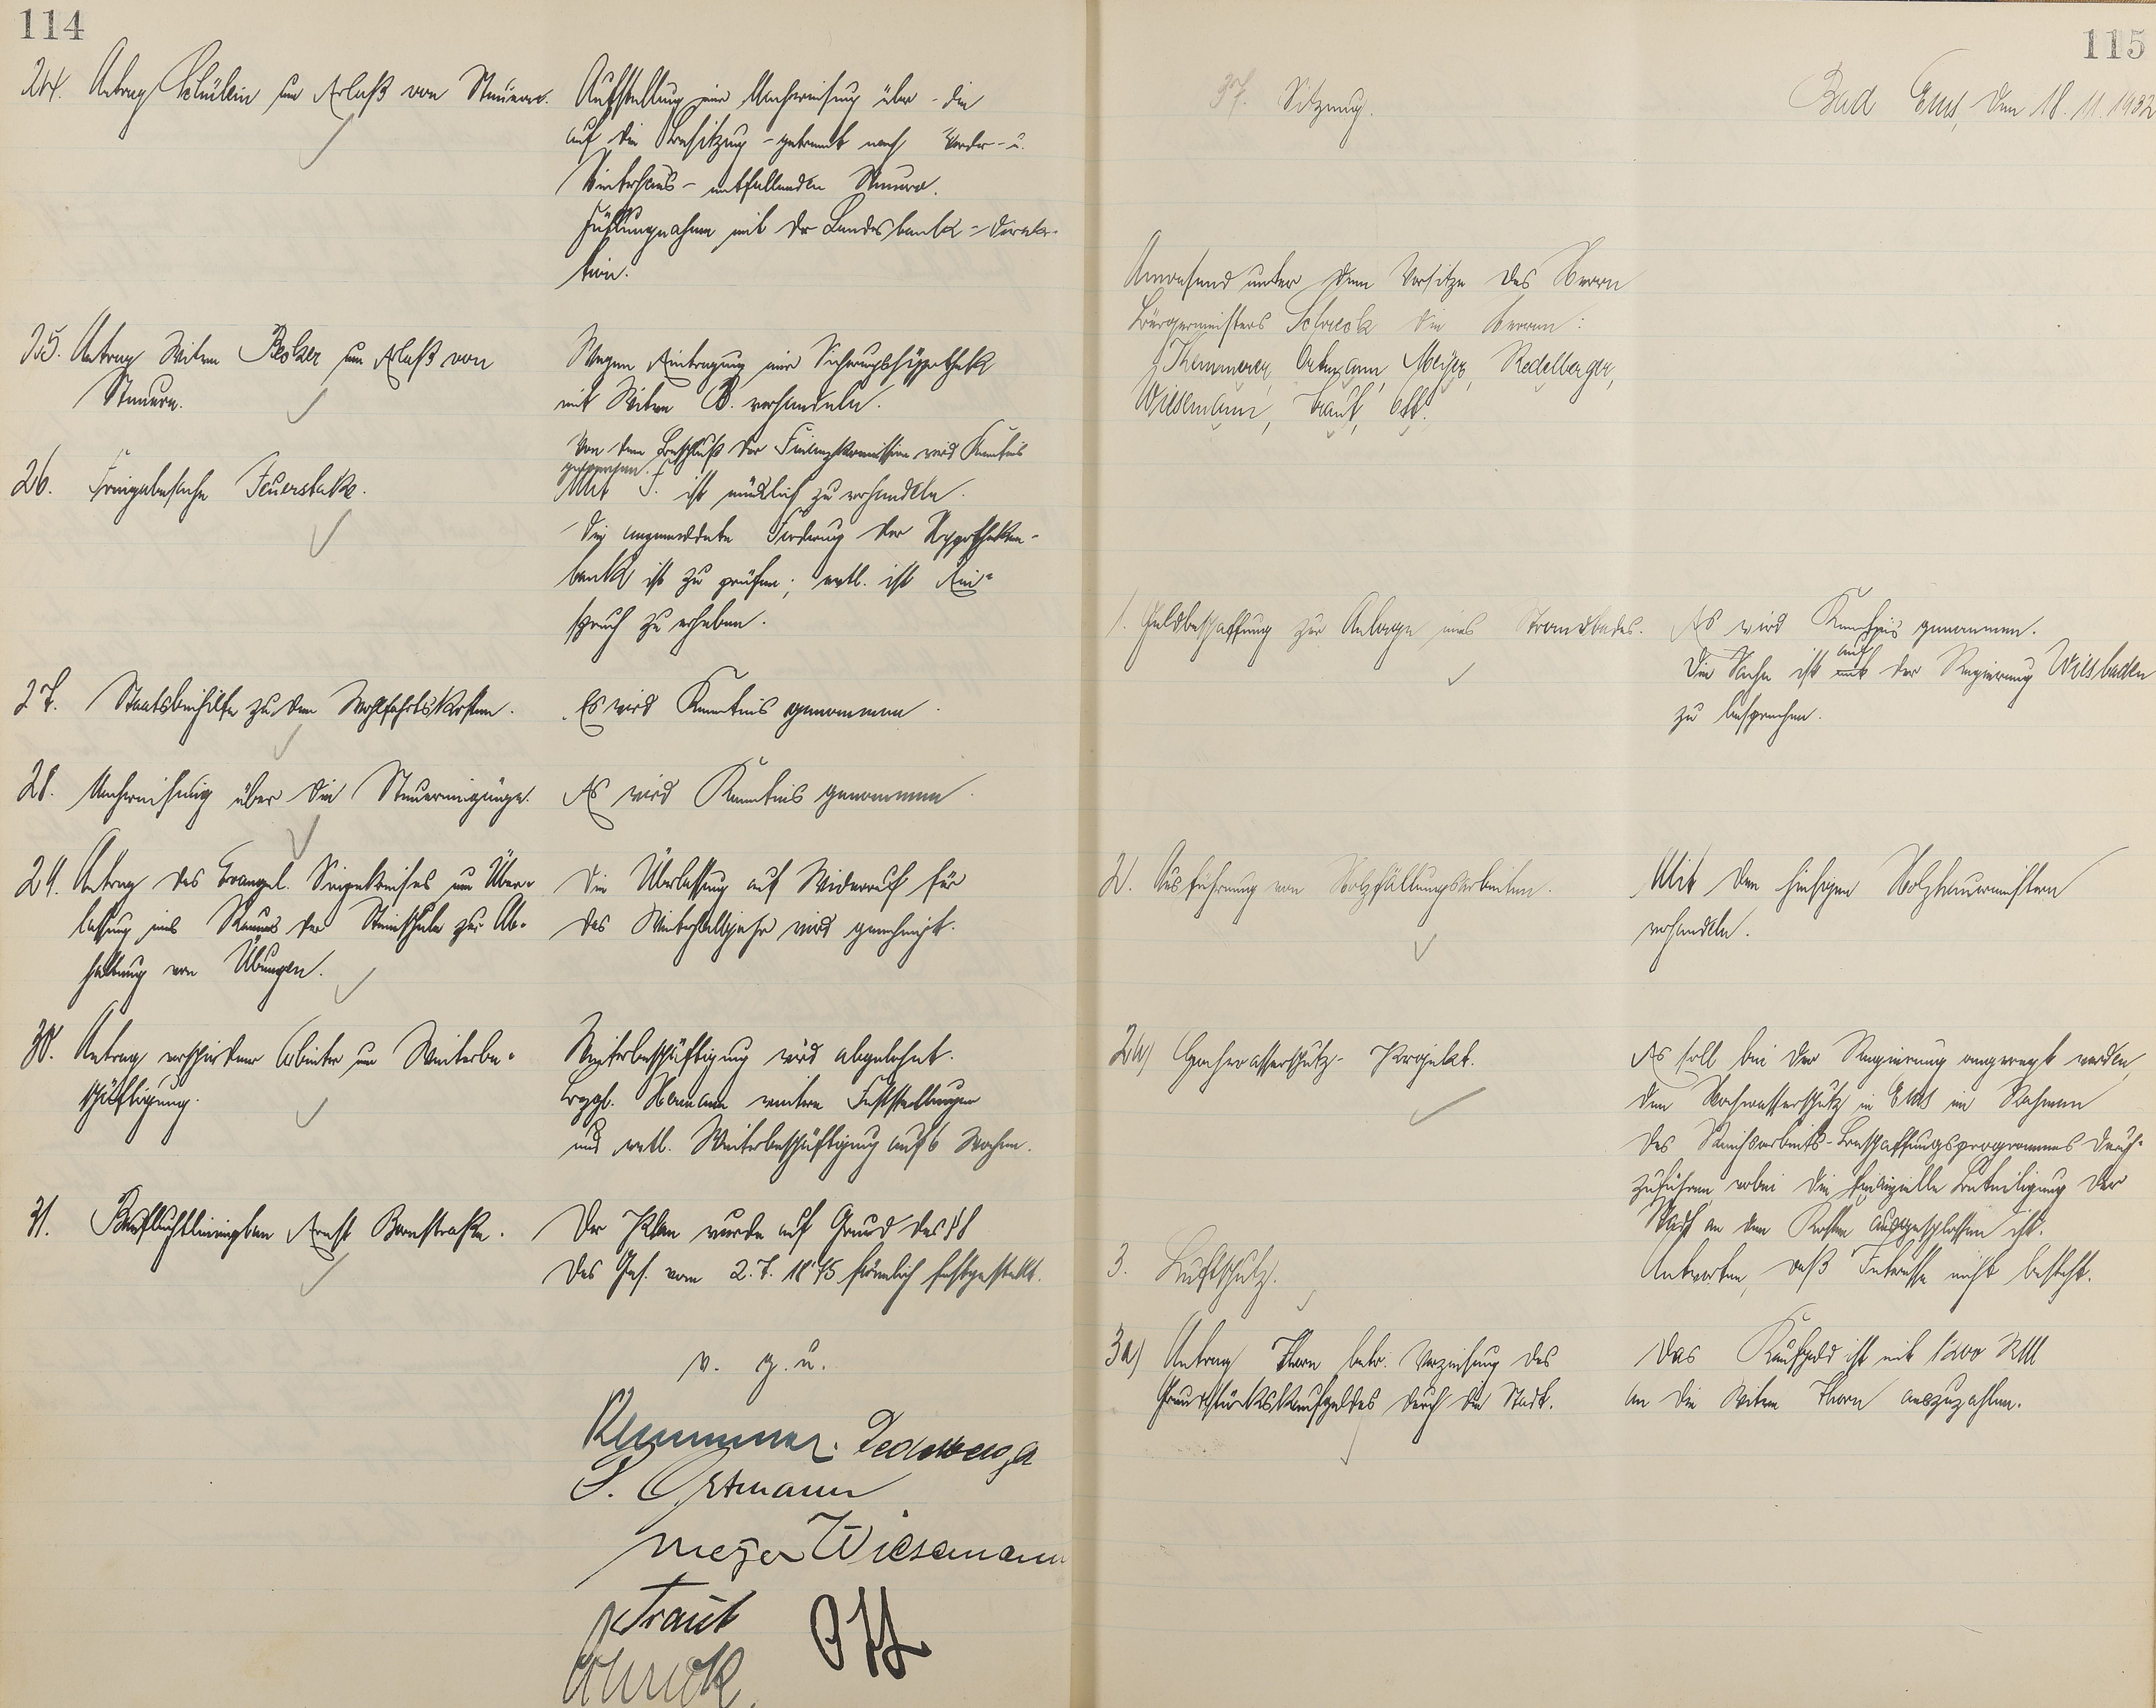 114
24. Antrag Schülein um Erlaß von Steuern.
Aufstellung einer Nachweisung über die
auf die Besitzung - getrennt nach Vorder- u.
Hinterhaus - entfallenden Steuern.
Fühlungnahme mit der Landesbank-Direk-
tion.
25. Antrag Witwe Becker um Erlaß von
Steuern.
Wegen Eintragung einer Sicherungshypothek
mit Witwe B. verhandeln.
26. Freigabesache Feuerstake.
Von dem Beschluß der Finanzkommission wird Kenntnis
genommen.
Mit F. ist mündlich zu verhandeln.
Die angemeldete Forderung der Hypotheken-
bank ist zu prüfen; evtl. ist Ein-
spruch zu erheben.
27. Staatsbeihilfe zu den Wohlfahrtskosten.
Es wird Kenntnis genommen.
28. Nachweisung über die Steuereingänge.
Es wird Kenntnis genommen.
29. Antrag des Evangel. Singekreises um Über-
lassung eines Raumes der Steinschule zur Ab-
haltung von Übungen.
Die Überlassung auf Widerruf für
das Winterhalbjahr wird genehmigt.
30. Antrag verschiedener Arbeiter um Weiterbe-
schäftigung.
Weiterbeschäftigung wird abgelehnt.
Bezgl. weitere Feststellungen
und evtl. Weiterbeschäftigung auf 6 Wochen.
31. Baufluchtlinienplan Ernst Bornstraße.
Der Plan wurde auf Grund des § 8
des Ges. vom 2.7.1875 förmlich festgestellt.
v. g. u.
Klemmerer. Redelberger
Ortmann
Meyer Wiesemann
Traut Ott
Schreck
115
37. Sitzung.
Bad Ems, den 18.11.1932
Anwesend unter dem Vorsitze des Herrn
Bürgermeisters Schreck die Herren:
Klemmerer, Ortmann, Meyer, Redelberger,
Wiesemann, Traut, Ott.
1. Geldbeschaffung zur Anlage eines Strandbades.
Es wird Kenntnis genommen.
Die Sache ist auch mit der Regierung Wiesbaden
zu besprechen.
2. Ausführung von Holzfällungsarbeiten.
Mit den hiesigen Holzhauermeistern
verhandeln.
2a) Hochwasserschutz-Projekt.
Es soll bei der Regierung angeregt werden,
den Hochwasserschutz in Ems im Rahmen
des Reichsarbeits-Beschaffungsprogrammes durch-
zuführen, wobei die finanzielle Beteiligung der
Stadt an den Kosten ausgeschlossen ist.
3. Luftschutz.
Antworten, daß Interesse nicht besteht.
3a) Antrag Thorn betr. Verzinsung des
Grundstückskaufgeldes durch die Stadt.
Das Kaufgeld ist mit 1200 RM
an die Witwe Thorn auszuzahlen.